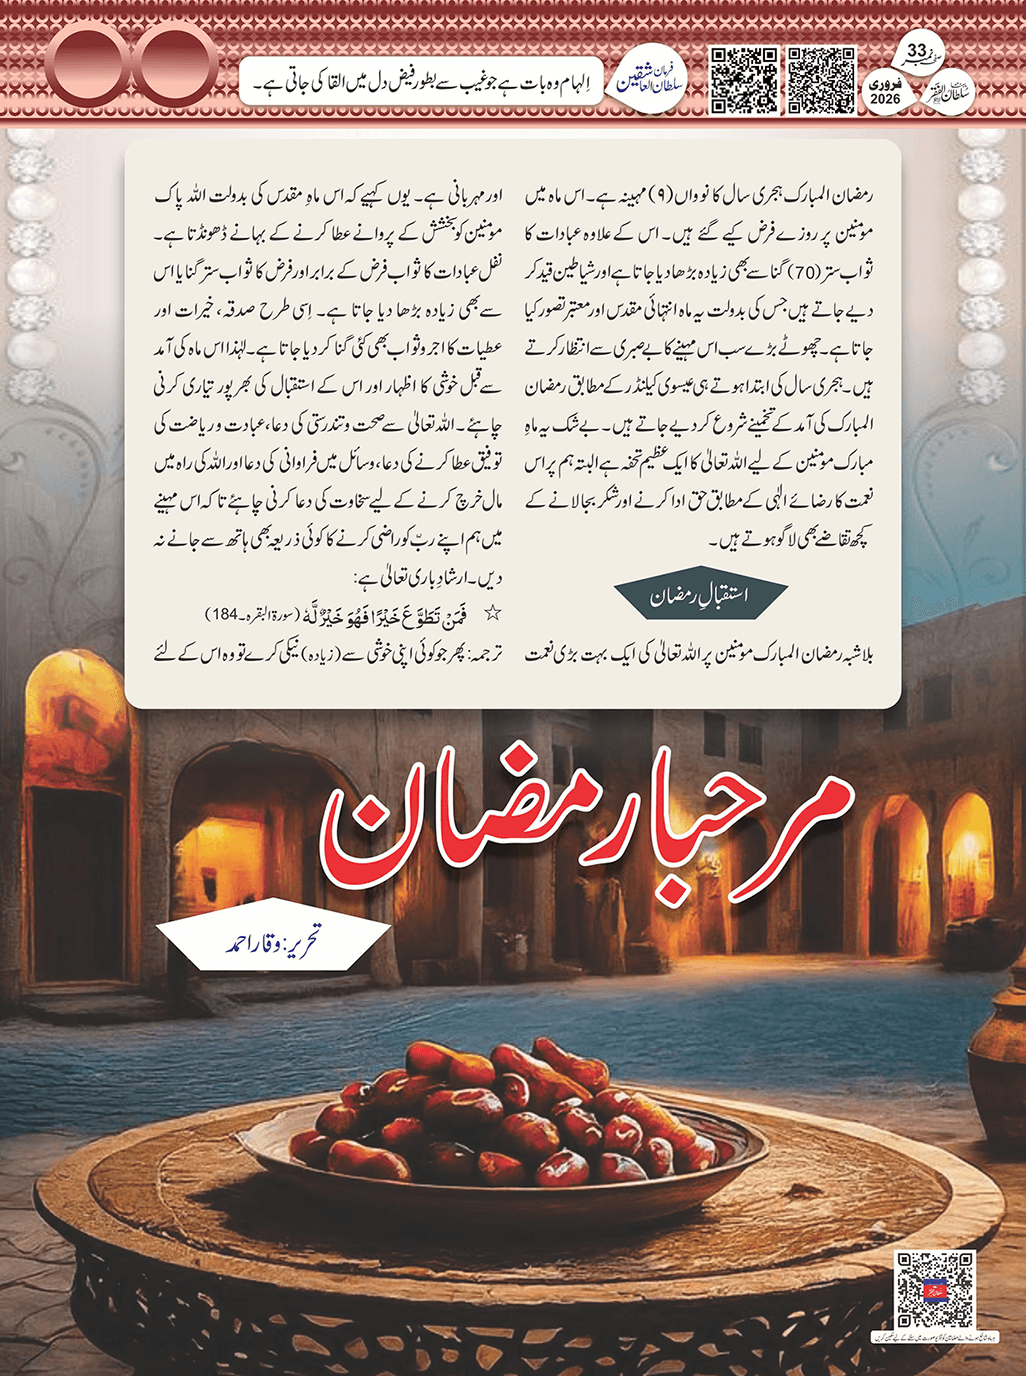 صفحہ نمبر 33
ماہنامہ سلطان الفقر لاہور
فروری
2026
فرمان سلطان العاشقین
اِلہام وہ بات ہے جو غیب سے بطور فیض دل میں القا کی جاتی ہے۔
رمضان المبارک ہجری سال کا نوواں (۹) مہینہ ہے۔ اس ماہ میں
مومنین پر روزے فرض کیے گئے ہیں۔ اس کے علاوہ عبادات کا
ثواب ستر (70) گنا سے بھی زیادہ بڑھا دیا جاتا ہے اور شیاطین قید کر
دیے جاتے ہیں جس کی بدولت یہ ماہ انتہائی مقدس اور معتبر تصور کیا
جاتا ہے۔ چھوٹے بڑے سب اس مہینے کا بے صبری سے انتظار کرتے
ہیں۔ ہجری سال کی ابتدا ہوتے ہی عیسوی کیلنڈر کے مطابق رمضان
المبارک کی آمد کے تخمینے شروع کر دیے جاتے ہیں۔ بے شک یہ ماہِ
مبارک مومنین کے لیے اللہ تعالیٰ کا ایک عظیم تحفہ ہے البتہ ہم پر اس
نعمت کا رضائے الٰہی کے مطابق حق ادا کرنے اور شکر بجا لانے کے
کچھ تقاضے بھی لاگو ہوتے ہیں۔
استقبالِ رمضان
بلاشبہ رمضان المبارک مومنین پر اللہ تعالیٰ کی ایک بہت بڑی نعمت
اور مہربانی ہے۔ یوں کہیے کہ اس ماہِ مقدس کی بدولت اللہ پاک
مومنین کو بخشش کے پروانے عطا کرنے کے بہانے ڈھونڈتا ہے۔
نفل عبادات کا ثواب فرض کے برابر اور فرض کا ثواب ستر گنا یا اس
سے بھی زیادہ بڑھا دیا جاتا ہے۔ اِسی طرح صدقہ، خیرات اور
عطیات کا اجر و ثواب بھی کئی گنا کر دیا جاتا ہے۔ لہٰذا اس ماہ کی آمد
سے قبل خوشی کا اظہار اور اس کے استقبال کی بھرپور تیاری کرنی
چاہئے۔ اللہ تعالیٰ سے صحت و تندرستی کی دعا، عبادت و ریاضت کی
توفیق عطا کرنے کی دعا، وسائل میں فراوانی کی دعا اور اللہ کی راہ میں
مال خرچ کرنے کے لیے سخاوت کی دعا کرنی چاہئے تاکہ اس مہینے
میں ہم اپنے ربّ کو راضی کرنے کا کوئی ذریعہ بھی ہاتھ سے جانے نہ
دیں۔ ارشادِ باری تعالیٰ ہے:
☆ فَمَنْ تَطَوَّعَ خَيْرًا فَهُوَ خَيْرٌ لَّهٗ (سورۃ البقرہ۔184)
ترجمہ: پھر جو کوئی اپنی خوشی سے (زیادہ) نیکی کرے تو وہ اس کے لئے
مرحبا رمضان
تحریر: وقار احمد